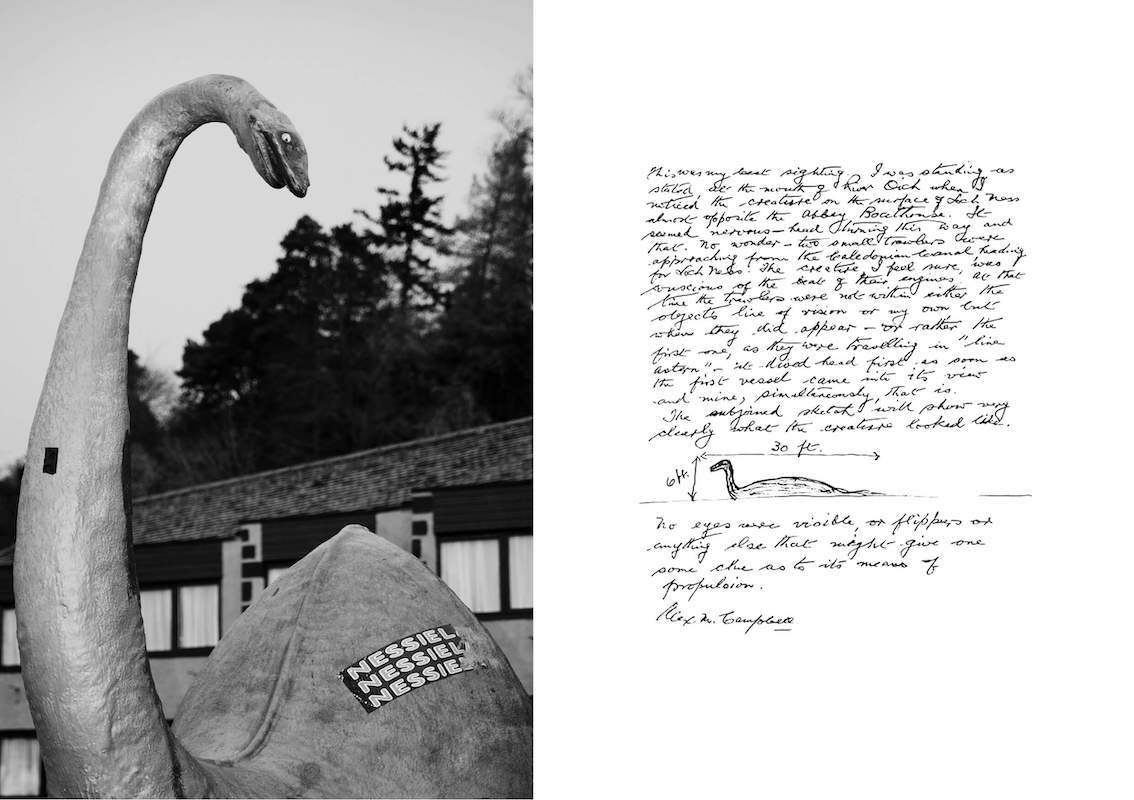 NESSIEL
NESSIEL
NESSIE
This was my best sighting. I was standing as
stated, at the mouth of River Oich when I
noticed the creature on the surface of Loch Ness
almost opposite the Abbey Boathouse. It
seemed nervous – head turning this way and
that. No wonder – two small trawlers were
approaching from the Caledonian Canal, heading
for Loch Ness. The creature, I feel sure, was
conscious of the beat of their engines. At that
time the trawlers were not within either the
objects line of vision or my own but
when they did appear – or rather the
first one, as they were travelling in "line
astern" – it dived head first as soon as
the first vessel came into its view
and mine, simultaneously, that is.
The subjoined sketch will show very
clearly what the creature looked like.
30 ft.
6ft.
No eyes were visible, or flippers or
anything else that might give one
some clue as to its means of
propulsion.
Alex. M. Campbell